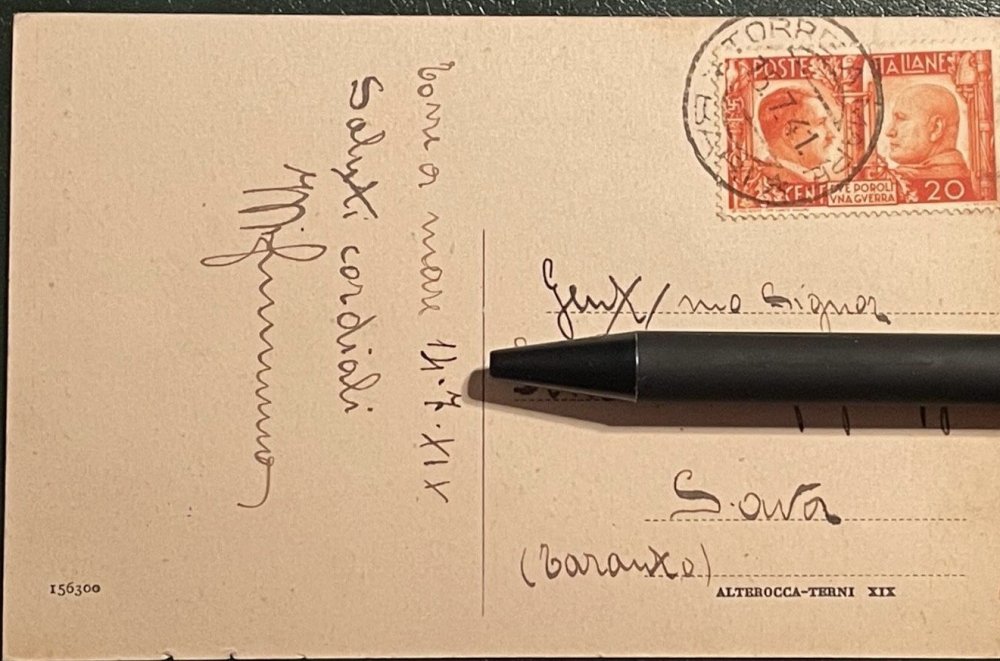 Torre a mare 14.7.XIX
Saluti cordiali
POSTE ITALIANE
CENT 20
DVE POPOLI
VNA GVERRA
Gent/mo Signor
Sava
(Taranto)
156300
ALTEROCCA-TERNI XIX